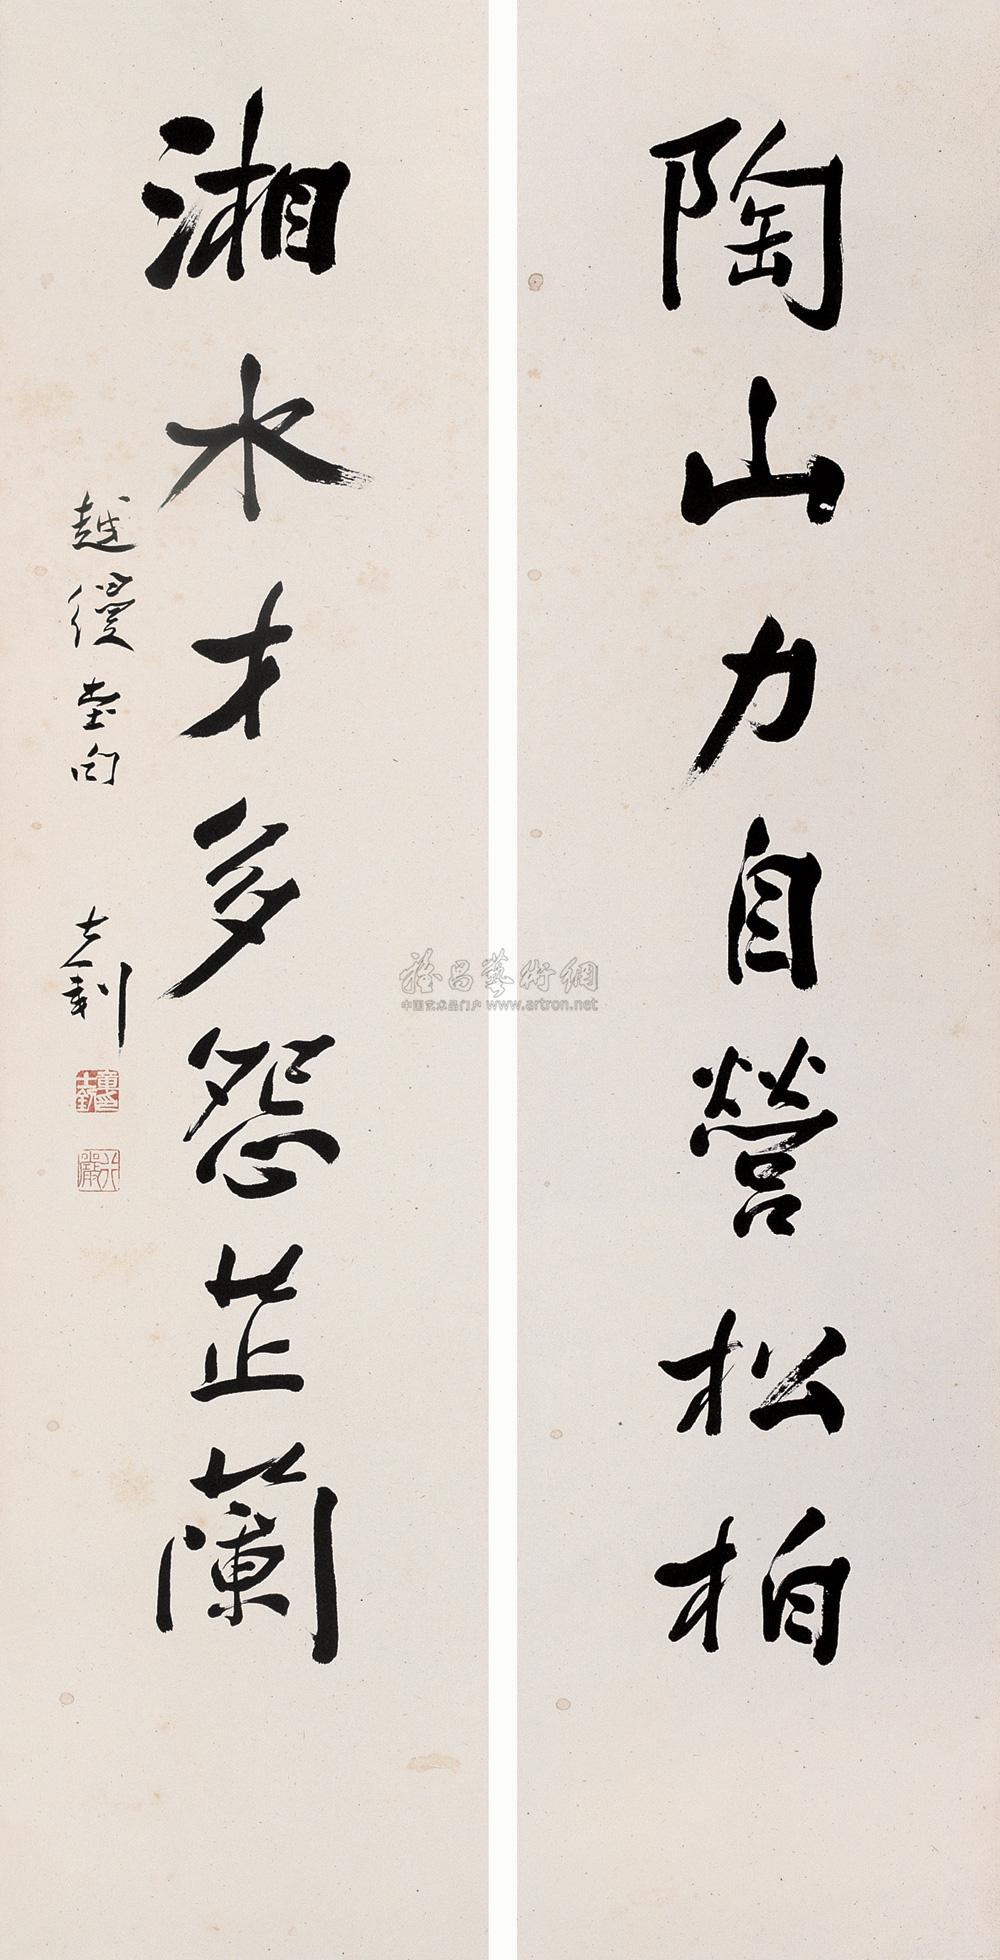 陶山力自營松柏
湘水才多怨芷蘭
越縵堂句
士釗
雅昌藝術網
中国艺术品门户 www.artron.net